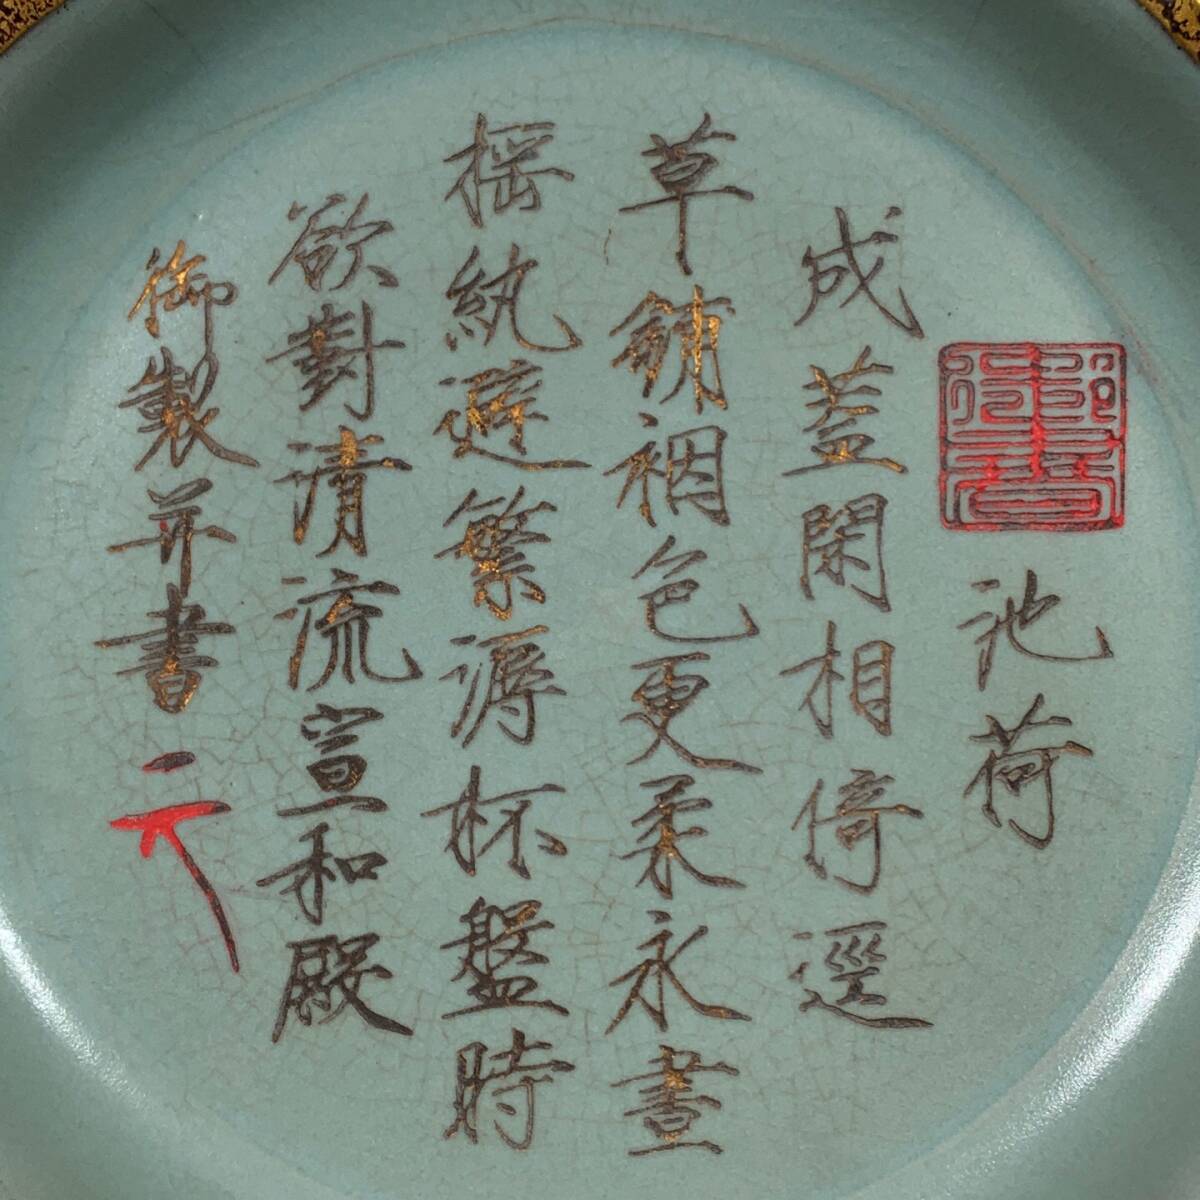 御書
池荷
成蓋閑相倚逕
草鋪裀色更柔永晝
搖紈避繁溽杯盤時
欲對清流宣和殿
御製并書